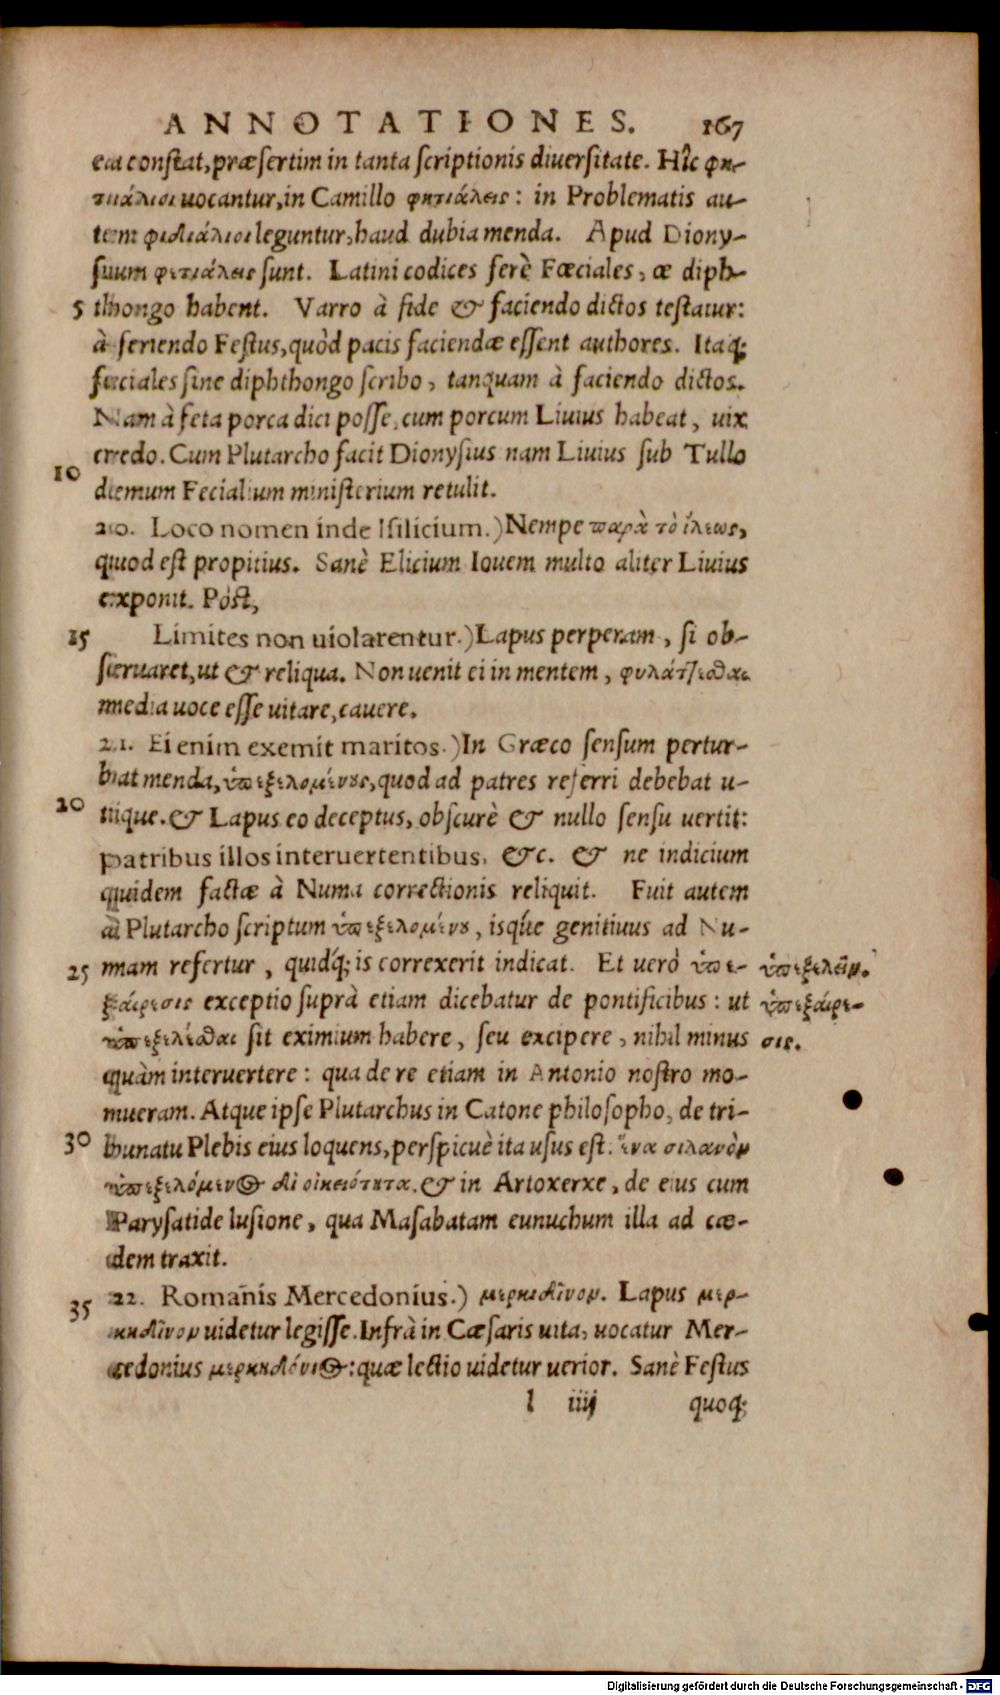 ANNOTATIONES. 167
ea constat, præsertim in tanta scriptionis diuersitate. Hîc φη-
τιάλιοι uocantur, in Camillo φητιάλεις: in Problematis au-
tem φιδιάλιοι leguntur, haud dubia menda. Apud Diony-
sium φετιάλεις sunt. Latini codices ferè Fœciales, œ diph-
5 thongo habent. Varro à fide & faciendo dictos testatur:
à feriendo Festus, quòd pacis faciendæ essent authores. Itaq;
feciales sine diphthongo scribo, tanquam à faciendo dictos.
Nam à feta porca dici posse, cum porcum Liuius habeat, uix
credo. Cum Plutarcho facit Dionysius nam Liuius sub Tullo
10 demum Fecialium ministerium retulit.
20. Loco nomen inde Ilicium.) Nempe παρὰ τὸ ἵλεως,
quod est propitius. Sanè Elicium Iouem multo aliter Liuius
exponit. Pòst,
15 Limites non uiolarentur.) Lapus perperam, si ob-
seruaret, ut & reliqua. Non uenit ei in mentem, φυλάττεσθαι
media uoce esse uitare, cauere.
21. Ei enim exemit maritos.) In Græco sensum pertur-
bat menda, ὑπεξελομένους, quod ad patres referri debebat u-
20 tique. & Lapus eo deceptus, obscurè & nullo sensu uertit:
patribus illos interuertentibus, &c. & ne indicium
quidem factæ à Numa correctionis reliquit. Fuit autem
à Plutarcho scriptum ὑπεξελομένου, isq́ue genitiuus ad Nu-
25 mam refertur, quidq́; is correxerit indicat. Et uerò ὑπε- ὑπεξελεῖν.
ξαίρεσις exceptio suprà etiam dicebatur de pontificibus: ut ὑπεξαίρε-
ὑπεξελέσθαι sit eximium habere, seu excipere, nihil minus σις.
quàm interuertere: qua de re etiam in Antonio nostro mo-
nueram. Atque ipse Plutarchus in Catone philosopho, de tri-
30 bunatu Plebis eius loquens, perspicuè ita usus est. ἕνα σιλανὸν
ὑπεξελόμενος δι οἰκειότητα. & in Artoxerxe, de eius cum
Parysatide lusione, qua Masabatam eunuchum illa ad cæ-
dem traxit.
22. Romanis Mercedonius.) μερκιδῖνον. Lapus μερ-
35 κηδῖνον uidetur legisse. Infrà in Cæsaris uita, uocatur Mer-
cedonius μερκηδόνιος: quæ lectio uidetur uerior. Sanè Festus
l iiij quoq;
Digitalisierung gefördert durch die Deutsche Forschungsgemeinschaft - DFG